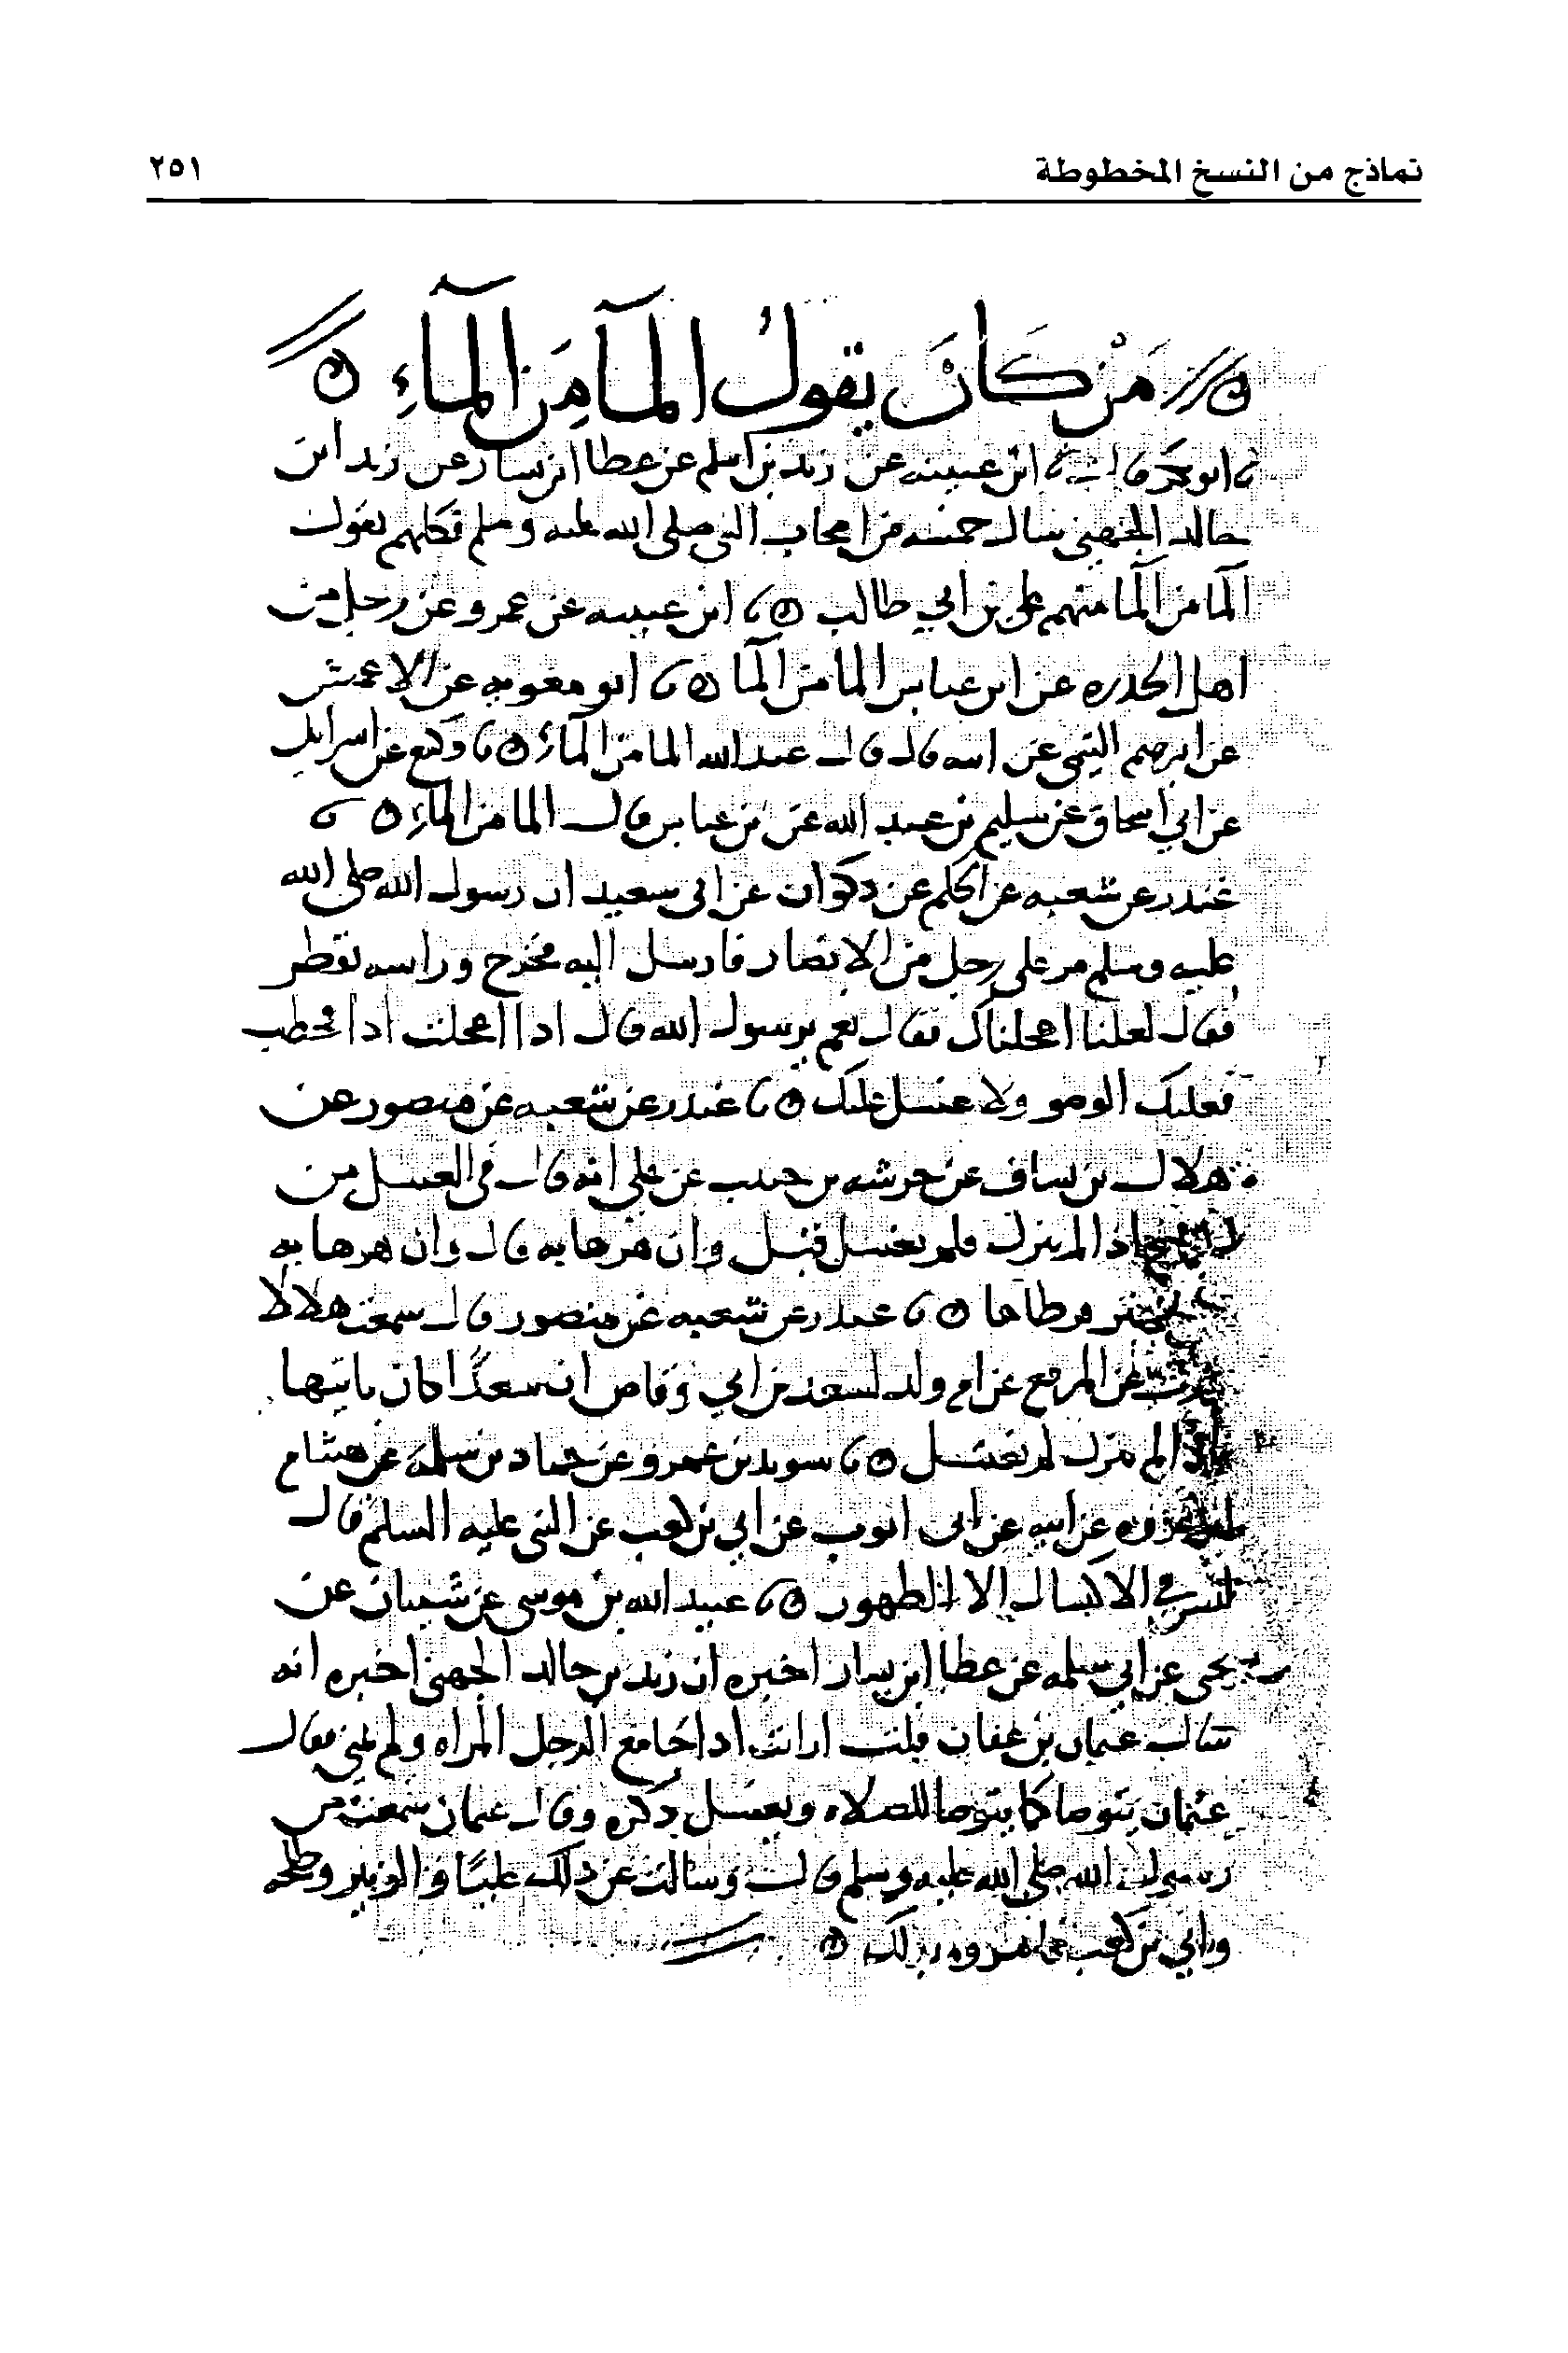 نماذج من النسخ المخطوطة
٢٥١
من كان يقول الما من الماء
ابو بكر قال ابن عيينه عن زيد بن اسلم عن عطا ابن يسار عن زيد ابن
خالد الجهني سال خمسه من اصحاب النبي صلى الله عليه وسلم فكلهم يقول
الما من الما منهم علي بن ابي طالب ٥ نا ابن عيينه عن عمرو عن رجل من
اهل عن ابن عباس الما من الما ٥ نا ابو معويه عن الاعمش
عن ابرهيم التيمي عن ابيه قال قال عبد الله الما من الماء ٥ نا وكيع عن اسرايل
عن ابي اسحاق عن سليم بن عبد الله عن بن عباس قال الما من الماء ٥ نا
غندر عن شعبه عن الحكم عن ذكوان عن ابي سعيد ان رسول الله صلى الله
عليه وسلم مر على رجل من الانصار فارسل اليه فخرج وراسه يقطر
فقال لعلنا اعجلناك فقال نعم يرسول الله قال اذا اعجلت اذا قحطت
فعليك الوضو ولا غسل عليك ٥ نا غندر عن شعبه عن منصور عن
هلال بن يساف عن خرشه بن حبيب عن علي انه قال في الغسل من
اذا لم ينزل فلم يغتسل قيل وان هزها به قال وان هزها به
حتى قرطاها ٥ نا غندر عن شعبه عن منصور قال سمعت هلالا
عن المرقع عن ام ولد لسعد بن ابي وقاص ان سعدًا كان ياتيها
فاذا لم ينزل لم يغتسل ٥ نا سويد بن عمرو عن حماد بن سلمه عن هشام
بن عروه عن ابيه عن ابي ايوب عن ابي بن كعب عن النبي عليه السلم قال
ليس في الاكسال الا الطهور ٥ نا عبيد الله بن موسى عن شيبان عن
يحيى عن ابي سلمه عن عطا ابن يسار اخبره ان زيد بن خالد الجهني اخبره انه
سال عثمان بن عفان قلت ارايت اذا جامع الرجل المراه ولم يمني فقال
عثمان يتوضا كما يتوضا للصلاه ويغسل ذكره وقال عثمان سمعته من
رسول الله صلى الله عليه وسلم قال وسالت عن ذلك عليًا والزبير وطلحه
وابي بن كعب فامروه بذلك ٥